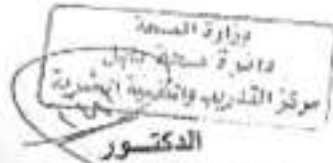 وزارة الصحة
دائرة صحة بابل
مركز التدريب والتنمية البشرية
الدكتور